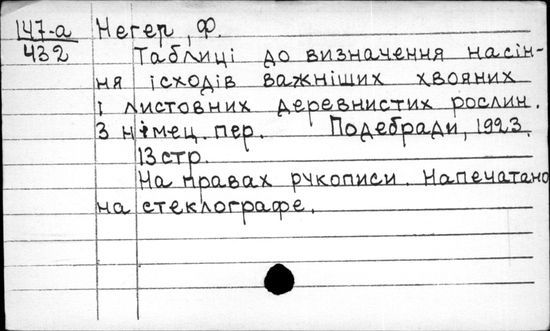 147-а Негер, Ф.
432 Таблиці до визначення насін-
ня ісходів важніших хвояних
і листовних деревнистих рослин.
З німец. пер. Подебради, 1923.
13 стр.
На правах рукописи. Напечатано
на стеклографе.